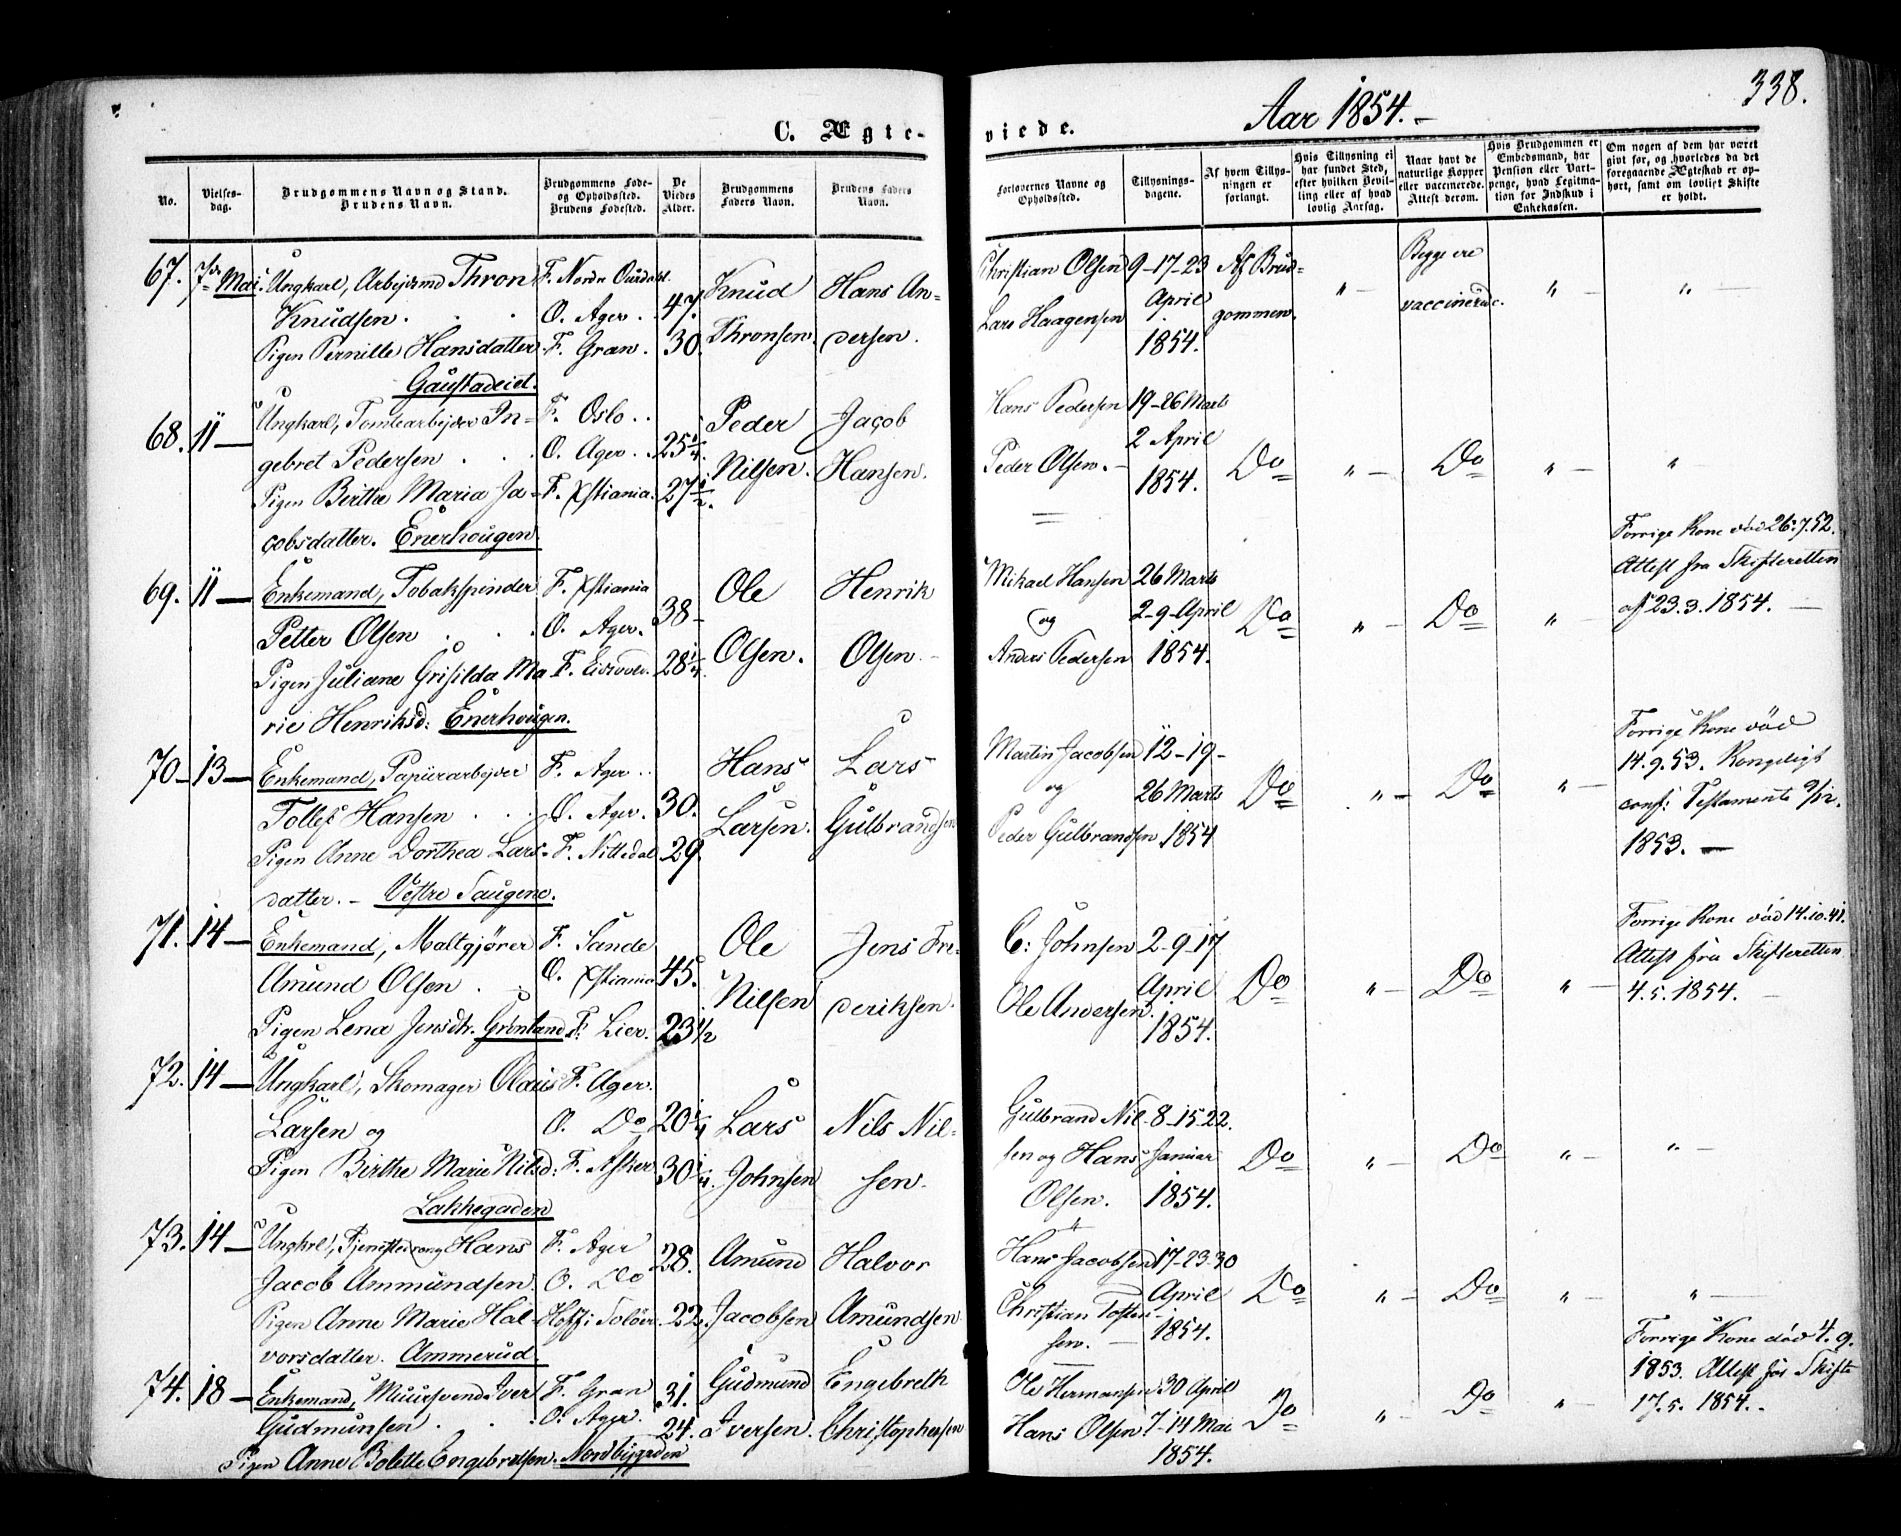 338.
C. Ægte-
viede.
Aar 1854.-
No.
Vielses-
dag.
Brudgommens Navn og Stand.
Brudens Navn.
Brudgommens Føde-
og Opholdssted.
Brudens Fødested.
De
Viedes
Alder.
Brudgommens
Faders Navn.
Brudens Faders
Navn.
Forlovernes Navne og
Opholdssted.
Tillysnings-
dagene.
Af hvem Tillys-
ningen er
forlangt.
Hvis Tillysning ei
har fundet Sted,
efter hvilken Bevil-
ling eller af hvad
lovlig Aarsag.
Naar havt de
naturlige Kopper
eller vaccinerede.
Attest derom.
Hvis Brudgommen er
Embedsmand, har
Pension eller Vart-
penge, hvad Legitma-
tion for Indskud i
Enkekassen.
Om nogen af dem har været
gift før, og hvorledes da det
foregaaende Ægteskab er op-
hørt, samt om lovligt Skifte
er holdt.
67. 7de Mai. Ungkarl, Arbejdsmd Thron F. Nordre Ourdahl 47. Knud Hans An- Christian Olsen 9-17-23 Af Brud- " - Begge ere " - " -
Knudsen . . . O. Ager . Lars Haagensen April gommen. vaccinerede.
Pigen Pernille Hansdatter F. Gran. 30. Thronsen. dersen. 1854.
Gaustadeiet.
68. 11 - Ungkarl, Tomtearbejder In- F. Oslo .. 25 1/4. Peder Jacob Hans Pedersen 19-26 Marts
gebret Pedersen . . . O. Ager .. Nilsen. Hansen. Peder Olsen. - 2 April Do " - Do " - "
Pigen Birthe Maria Ja- F. Xstiania. 27 1/2. 1854.
cobsdatter. Enerhougen
69. 11 - Enkemand, Tobakspinder F. Xstiania 38 - Ole Henrik Mikael Hansen 26 Marts Do " - Do " - Forrige Kone död 26.7.52.
Petter Olsen . . . O. Ager. og 2-9-April Attest fra Skifteretten
Pigen Juliane Grisilda Ma F. Eidsvold. 28 1/4. Olsen. Olsen. - Anders Pedersen 1854. af 23.3.1854. -
rie Henriksd: Enerhougen.
70 - 13 - Enkemand, Papiirarbejder F. Ager .. 30. Hans Lars Martin Jacobsen 12-19- Do " - Do " - Forrige Kone död
Tollef Hansen . . . O. Ager. og 26 Marts 14.9.53. Kongeligt
Pigen Anne Dorthea Lars- F. Nittedal 29. Larsen. Gulbrandsen Peder Gulbrandsen 1854 conf: Testamente 9/12.
datter. - Vestre Saugene. 1853. -
71. 14 - Enkemand, Maltgjører F. Sande 45. Ole Jens Fre- C: Johnsen 2-9-17 Do " - Do " - Forrige Kone död 14.10.41.
Amund Olsen . . O. Xstiania April Attest fra Skifteretten
Pigen Lena Jensdtr. Grönland F. Lier. 23 1/2 Nilsen deriksen. Ole Andersen. 1854. 4.5.1854. -
72. 14 - Ungkarl, Skomager Olaus F. Ager. 20 1/4 Lars Nils Nil- Gulbrand Nil- 8-15-22. Do " - Do " - " -
Larsen og O. Do sen og Hans Januar
Pigen Birthe Marie Nilsd: F. Asker 30 1/4. Johnsen sen. Olsen. 1854.
Lakkegaden
73. 14 - Ungkrl, Tjenestedreng Hans F. Ager 28. Amund Halvor Hans Jacobsen 17-23-30 Do " - Do " - " -
Jacob Ammundsen O. Do April
Pigen Anne Marie Hal- Hoff i Solöer. 22. Jacobsen Amundsen Christian Tosten- 1854.
vorsdatter. Ammerud. sen. -
74. 18 - Enkemand, Muursvend Iver F. Gran 31. Gudmund Engebreth Ole Hermansen 30 April Do " - Do " - Forrige Kone död 4.9.
Gudmunsen . . . O. Ager. 24. Iversen. Christophersen Hans Olsen 7-14 Mai 1853. Attest för Skifte
Pigen Anne Bolette Engebretsen. Nordbygaden 1854. 17.5.1854.